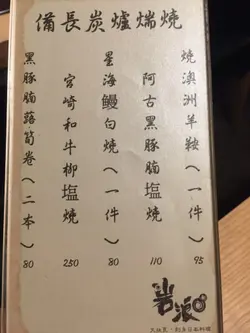 備長炭爐端燒
燒澳洲羊鞍(一件) 95
阿古黑豚腩塩燒 110
星海鰻白燒(一件) 80
宮崎和牛柳塩燒 250
黑豚腩蘆筍卷(二本) 80
岩浪